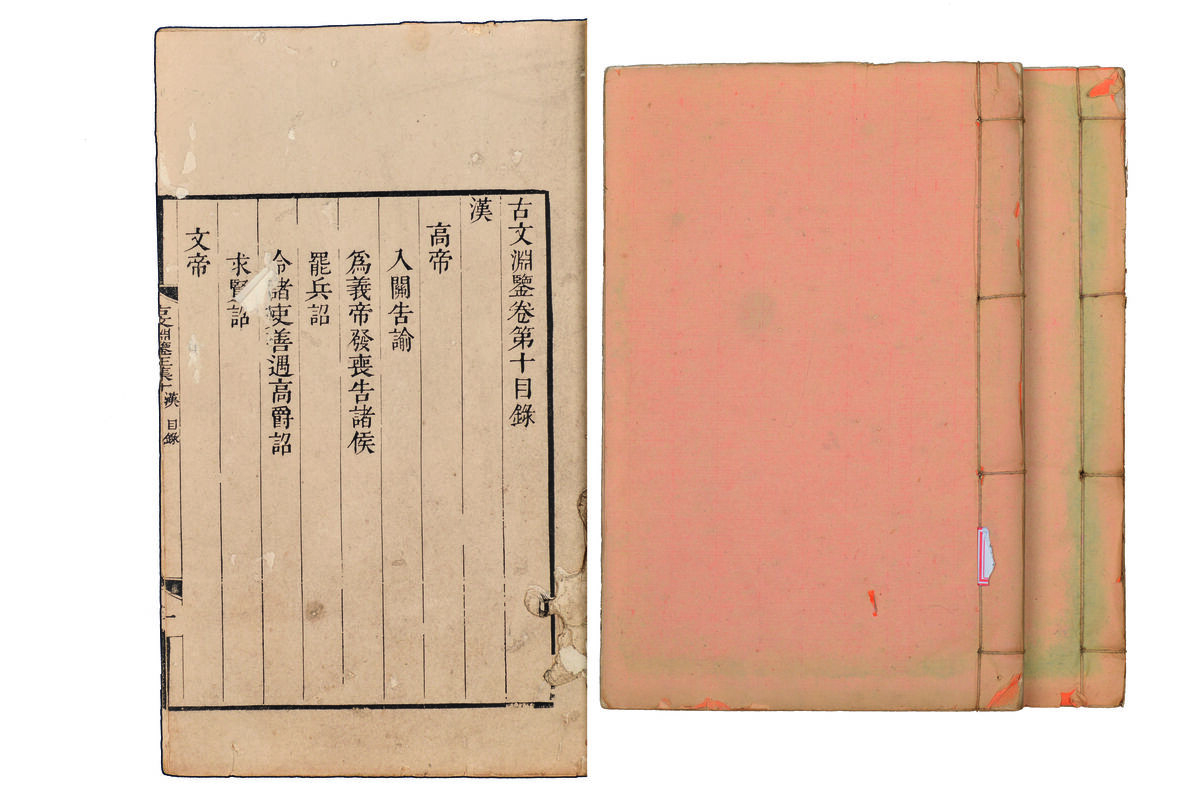 古文淵鑒卷第十目錄
漢
高帝
入關告諭
為義帝發喪告諸侯
罷兵詔
令諸吏善遇高爵詔
求賢詔
文帝
古文淵鑒正集十 漢 目錄
一